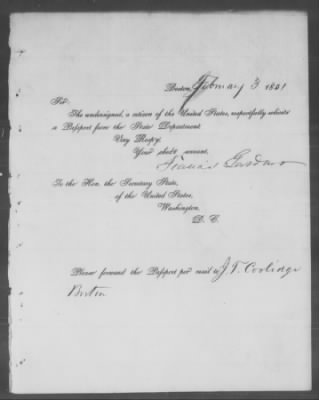 Boston, February 3 1851
Sir.
The undersigned, a citizen of the United States, respectfully solicits
a Passport from the State Department.
Very Respy.
Your obedt servant,
Francis Gardner
To the Hon. the Secretary State,
of the United States,
Washington,
D. C.
Please forward the Passport per mail to J. T. Coolidge
Boston